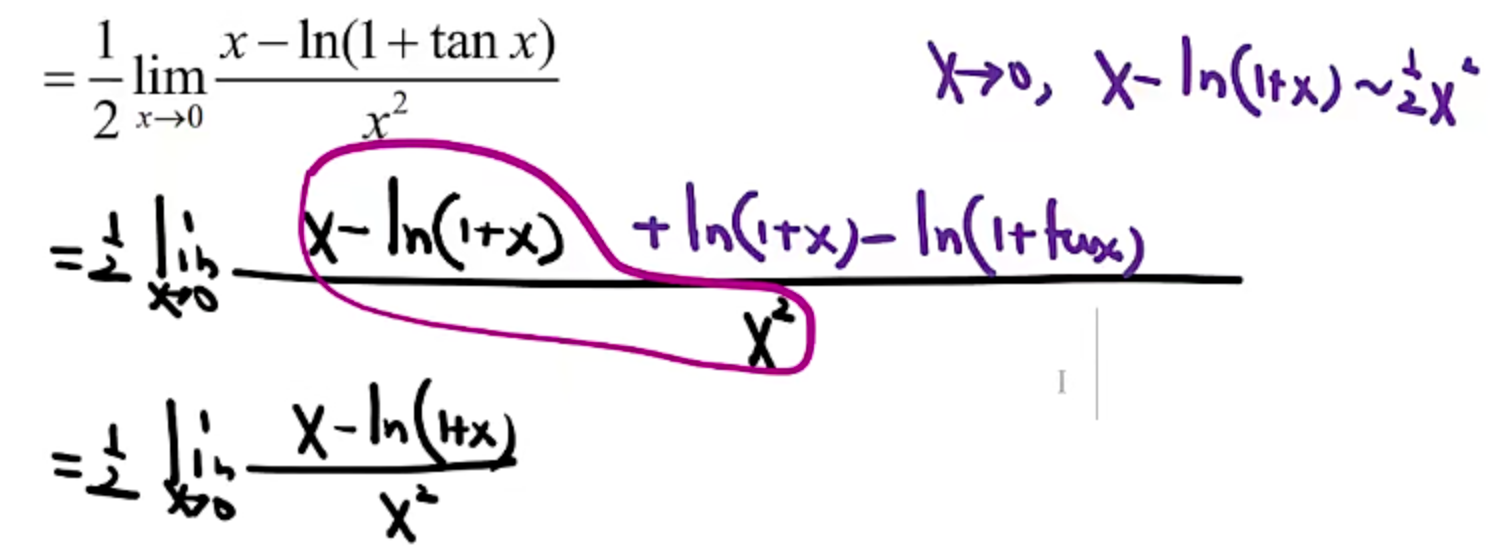 = 1/2 lim x→0 (x − ln(1 + tan x)) / x²
x→0, x − ln(1+x) ~ 1/2 x²
= 1/2 lim x→0 (x − ln(1+x) + ln(1+x) − ln(1+tanx)) / x²
= 1/2 lim x→0 (x − ln(1+x)) / x²